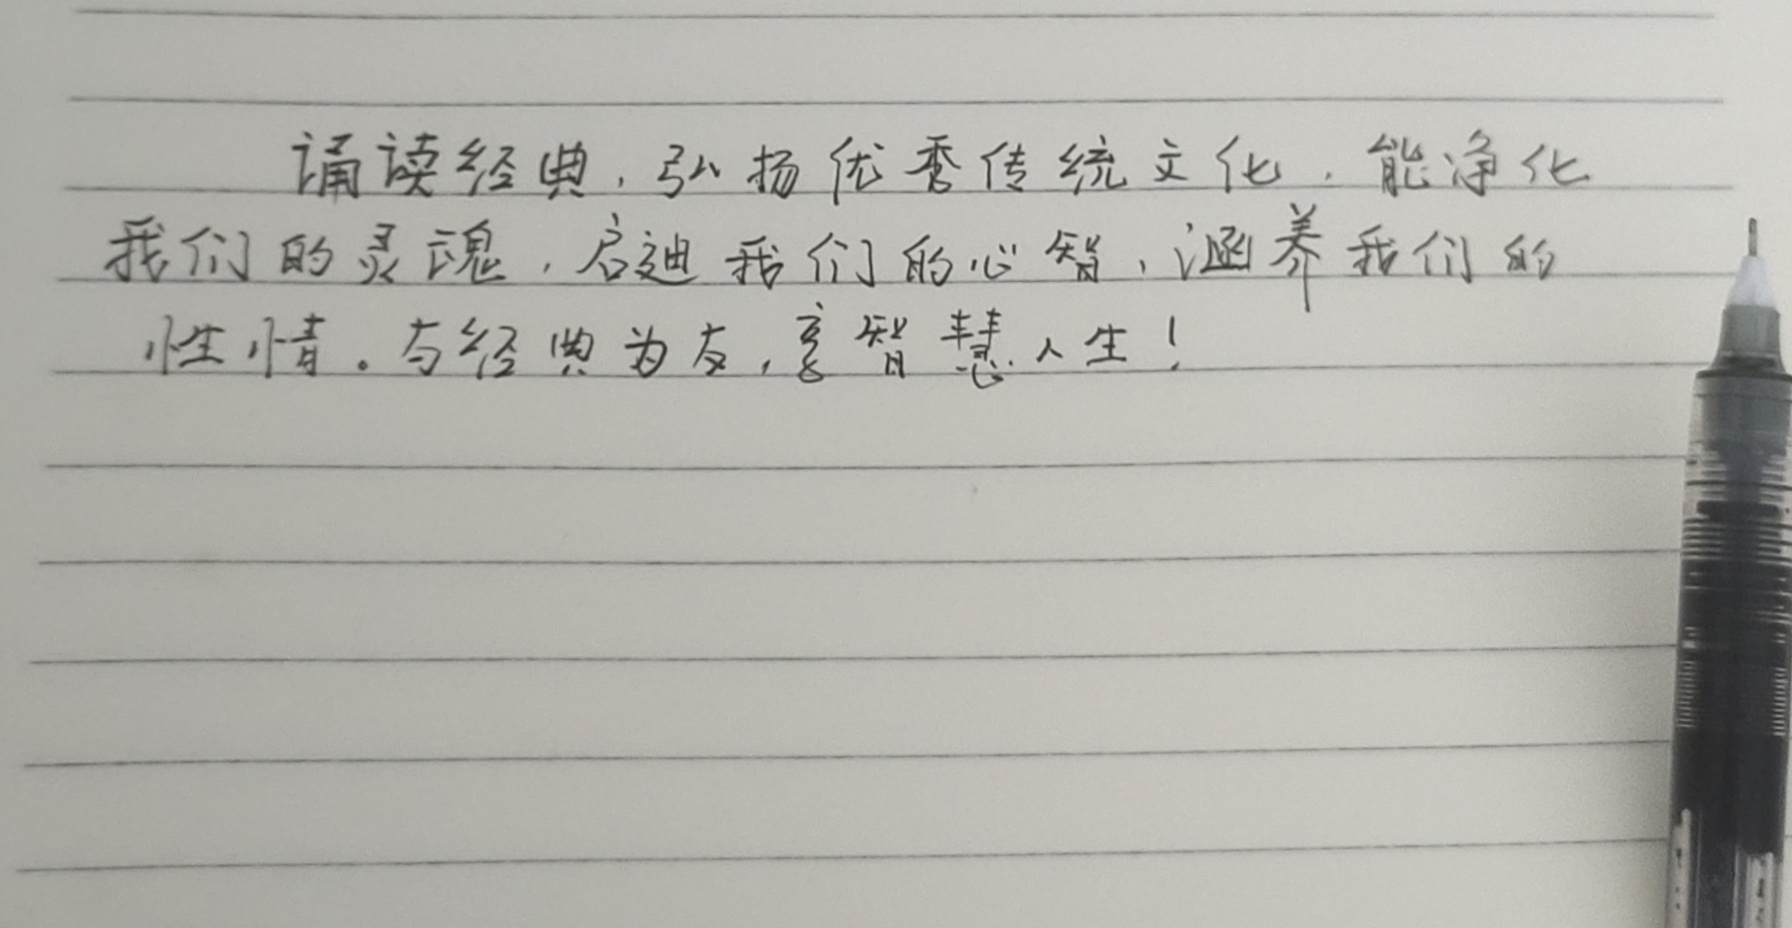 诵读经典，弘扬优秀传统文化，能净化
我们的灵魂，启迪我们的心智，涵养我们的
性情。与经典为友，享智慧人生！